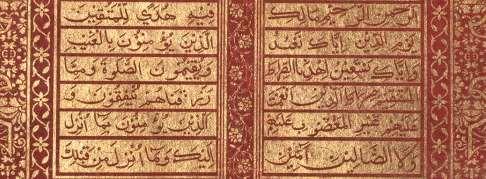 الرحمن الرحيم مالك
يوم الدين اياك نعبد
واياك نستعين اهدنا الصراط
المستقيم صراط الذين انعمت
عليهم غير المغضوب عليهم
ولا الضالين امين
فيه هدى للمتقين
الذين يؤمنون بالغيب
ويقيمون الصلوة ومما
رزقناهم ينفقون و
الذين يؤمنون بما انزل
اليك وما انزل من قبلك